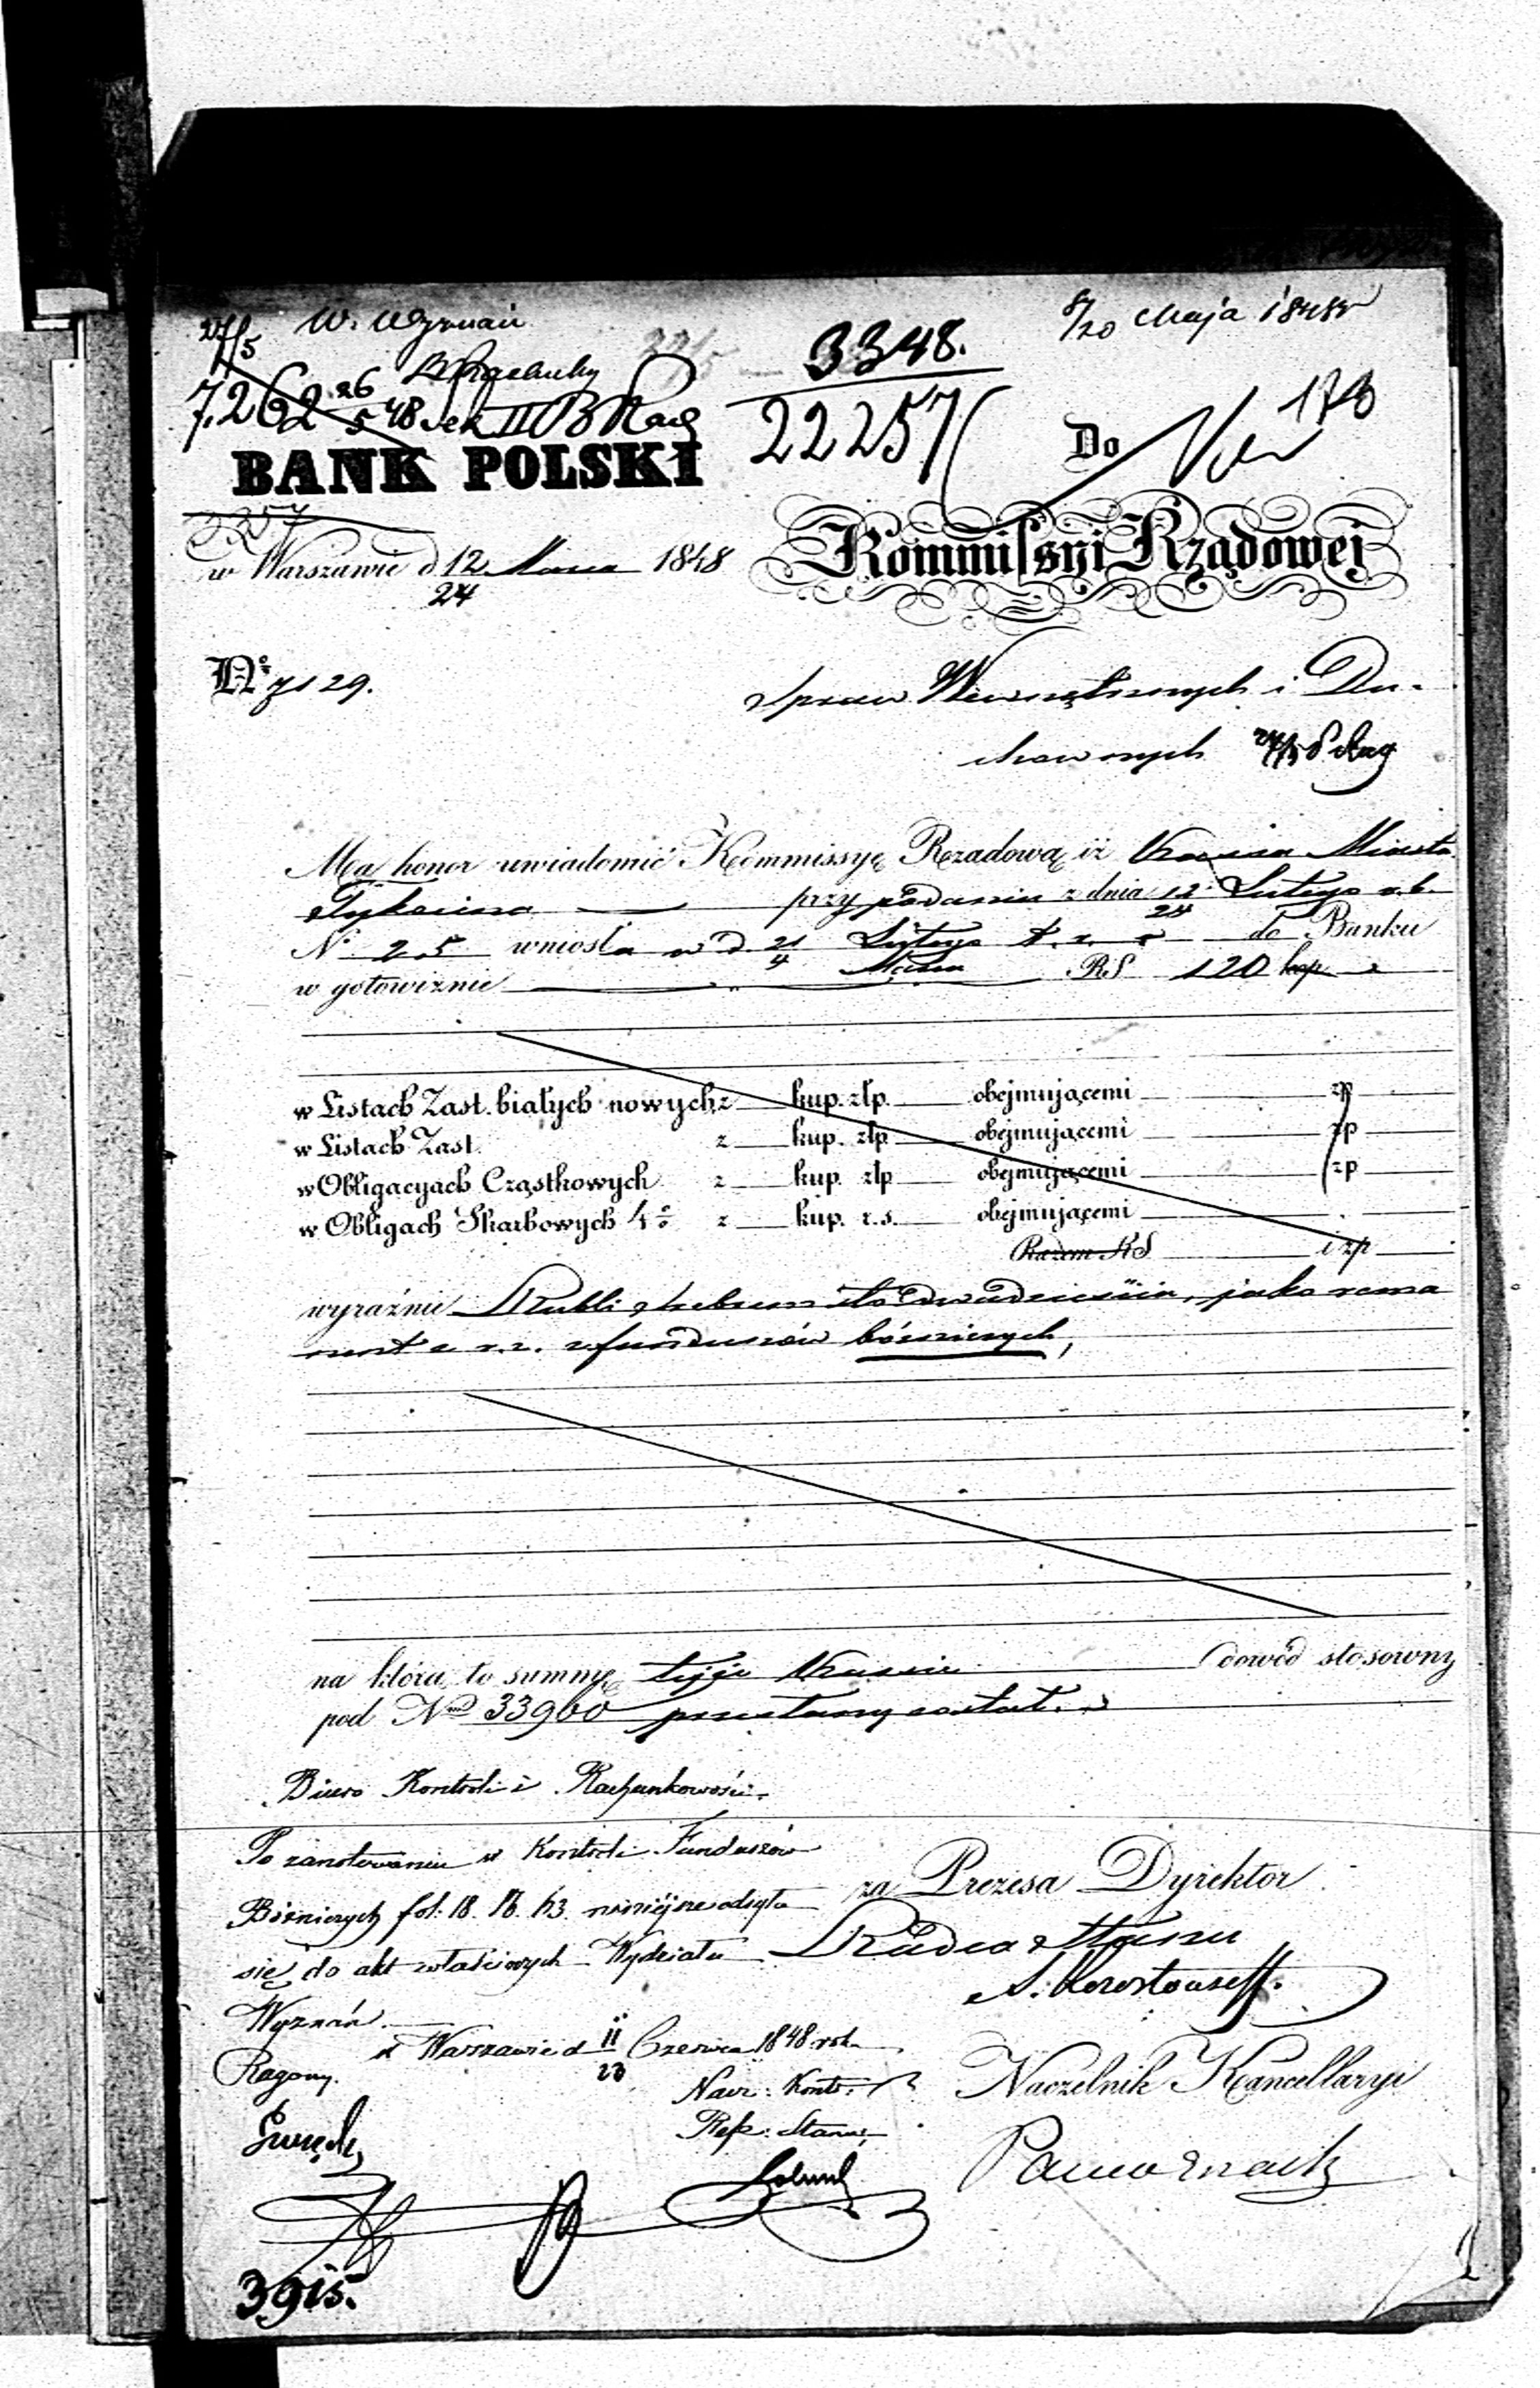 27/5 W. Wyznań
8/20 Maja 1848 r
3348.
7.262 26/5 48 Sek II B Rach
22257
173
BANK POLSKI
Do
Kommissyi Rządowej
w Warszawie d 12/24 Marca 1848
No 7129.
Spraw Wewnętrznych i Du-
chownych
Ma honor uwiadomić Kommissyę Rządową iż Kassa Miasta
Tykocina przy podaniu z dnia 12/24 Lutego r.b.
No 25 wniosła w d. 21 Lutego / 4 Marca t. r. do Banku
w gotowiznie RS 120 kop
w Listach Zast. białych nowych z kup. złp. obejmującemi zp
w Listach Zast. z kup. złp obejmującemi zp
w Obligacyach Cząstkowych z kup. złp obejmującemi zp
w Obligach Skarbowych 4% z kup. r.s. obejmującemi
Razem RS i zp
wyraźnie Rubli srebrem sto dwadzieścia, jako rema
nent z r.z. z funduszów bóżniczych,
na którą to summę tejże Kassie dowód stosowny
pod Nrem 33960 przesłany został.
Biuro Kontroli i Rachunkowości.
Po zanotowaniu w Kontroli Funduszów
Bóżniczych fol: 18. N. 63. niniejsze odsyła
się do akt właściwych Wydziału
Wyznań.
w Warszawie d 11/23 Czerwca 1848 rok
za Prezesa Dyrektor
Radca Stanu
Nacz: Kontr:
Naczelnik Kancellaryi
3915.